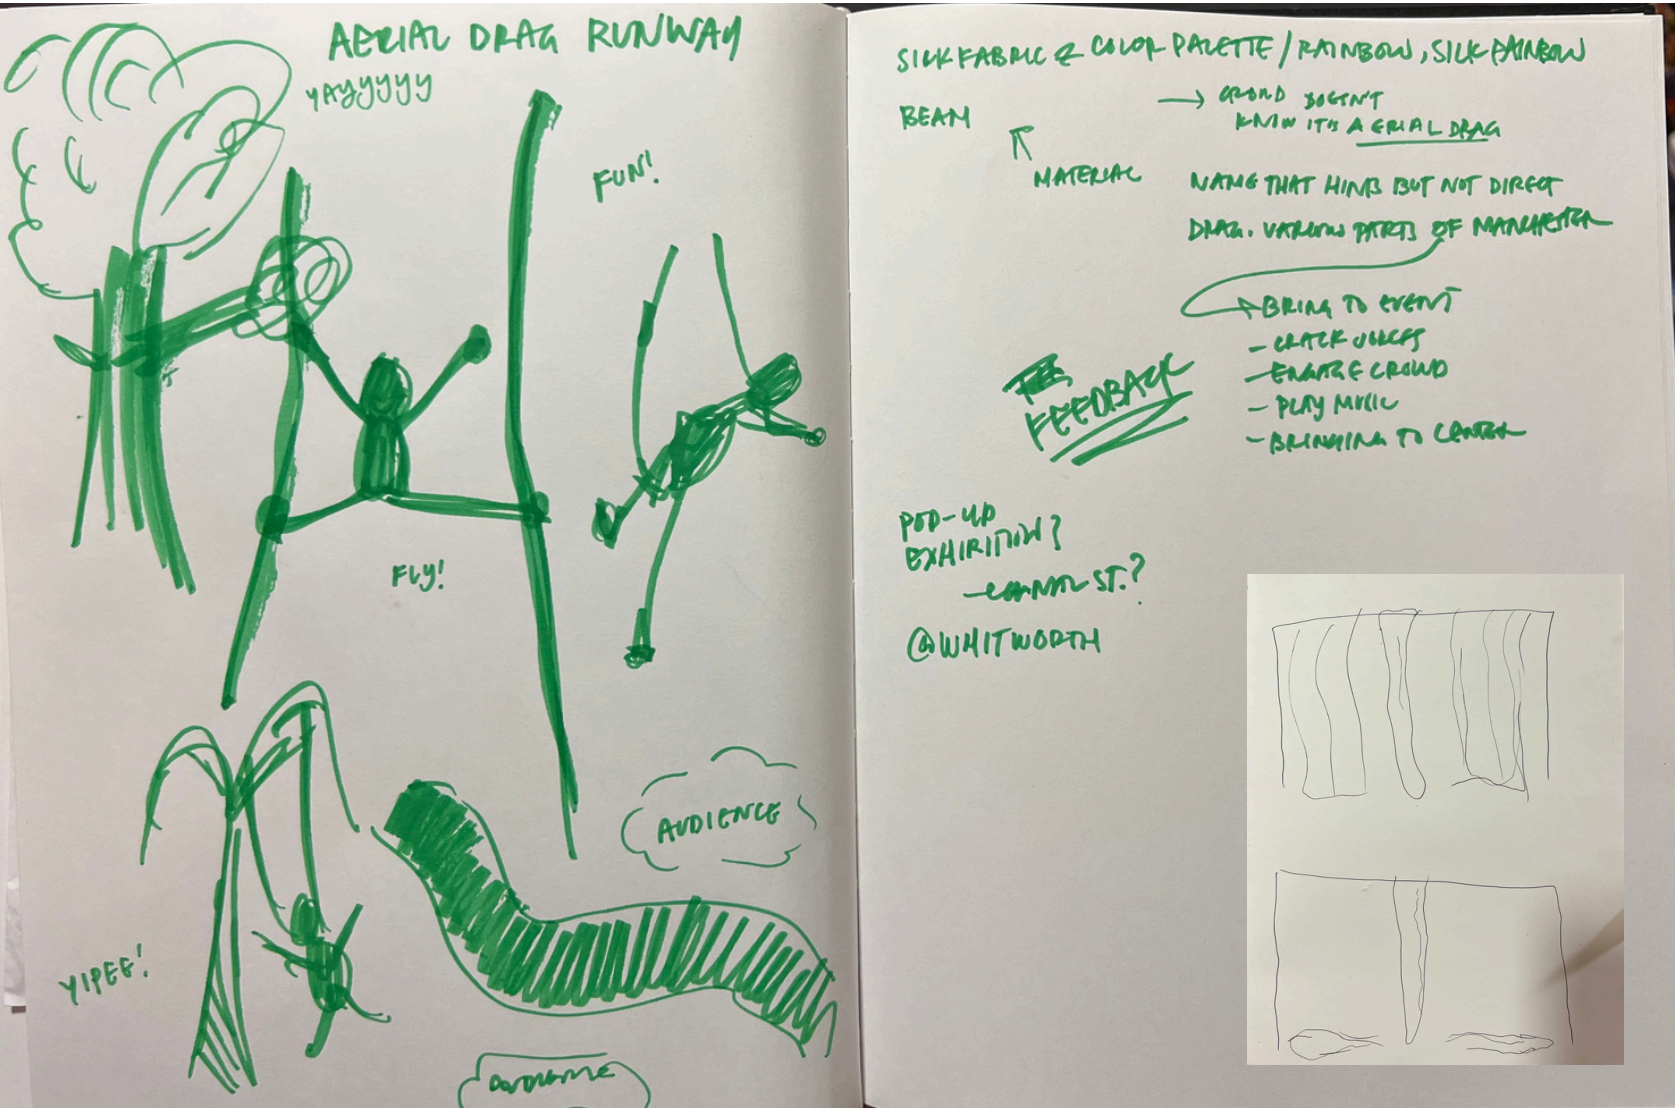 AERIAL DRAG RUNWAY
YAYYYYY
FUN!
FLY!
YIPEE!
AUDIENCE
AUDIENCE
SILK FABRIC & COLOR PALETTE / RAINBOW, SILK RAINBOW
BEAM
MATERIAL
→ CROWD DOESN'T
KNOW IT'S AERIAL DRAG
NAME THAT HINTS BUT NOT DIRECT
DRAG. VARIOUS PARTS OF MANCHESTER
BRING TO EVENT
- CRACK JOKES
- ENGAGE CROWD
- PLAY MUSIC
- BRINGING TO CENTER
FEEDBACK
POP-UP
EXHIBITION?
- CANAL ST.?
@WHITWORTH